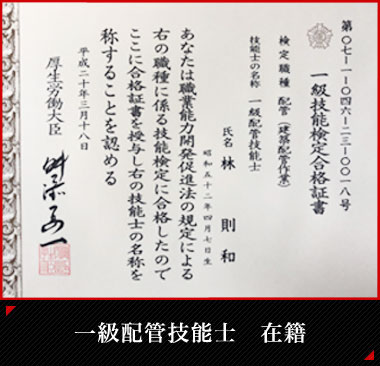 第〇七-一-〇四六-二三-〇〇一八号
一級技能検定合格証書
検定職種 配管(建築配管作業)
技能士の名称 一級配管技能士
氏名 林 則和
昭和五十二年四月七日生
あなたは職業能力開発促進法の規定による
右の職種に係る技能検定に合格したので
ここに合格証書を授与し右の技能士の名称を
称することを認める
平成二十年三月十八日
厚生労働大臣
一級配管技能士 在籍